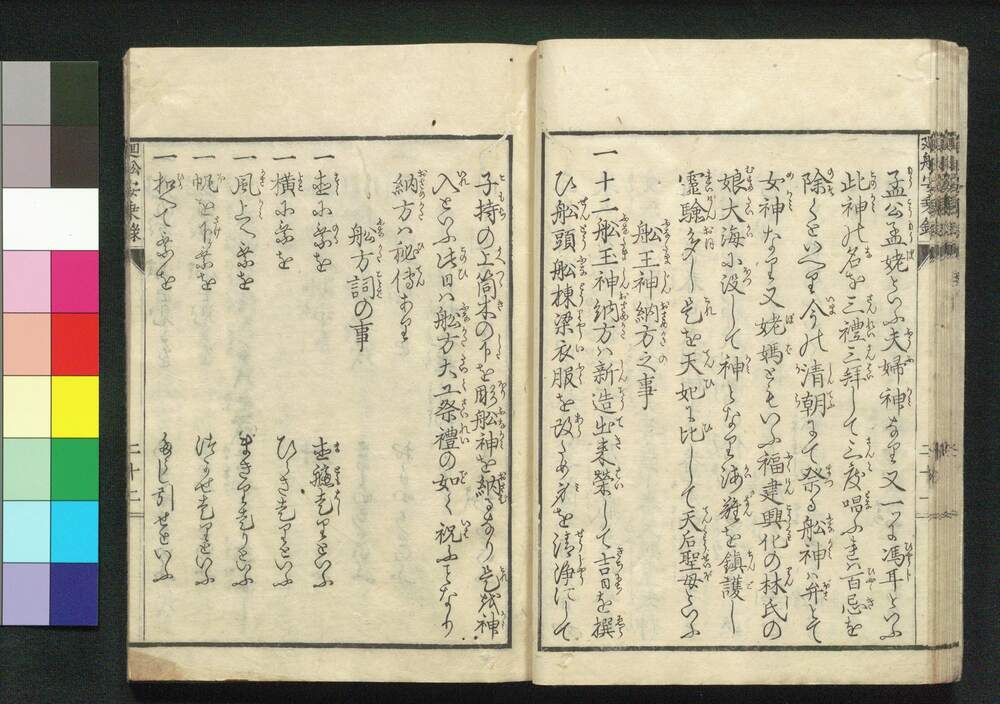 孟公孟姥といふ夫婦神なり又一つに馮耳といふ
此神の名を三禮三拜して三度唱ふれは百忌を
除くといへり今の清朝にて祭る舩神ハ弁とて
女神なり又姥媽ともいふ福建興化の林氏の
娘大海に没して神となり海難を鎮護し
霊驗多し是を天妃に比して天后聖母といふ
舩王神納方之事
一 十二舩玉神納方ハ新造出来榮して吉日を撰
ひ舩頭舩棟梁衣服を改ため身を清浄にして
子持の上筒木の下を舩神を納るなり是を神
入といふ此日ハ舩方大工祭禮の如く祝ふとなり
納方ハ秘傳あり
舩方詞の事
一 真に乗を 真艫走りといふ
一 横に乗を ひらき走りといふ
一 風上へ乗を まきり走りといふ
一 帆を下ケ乗を つかせ走りといふ
一 扣へて乗を
廻舩安乗録
二十二